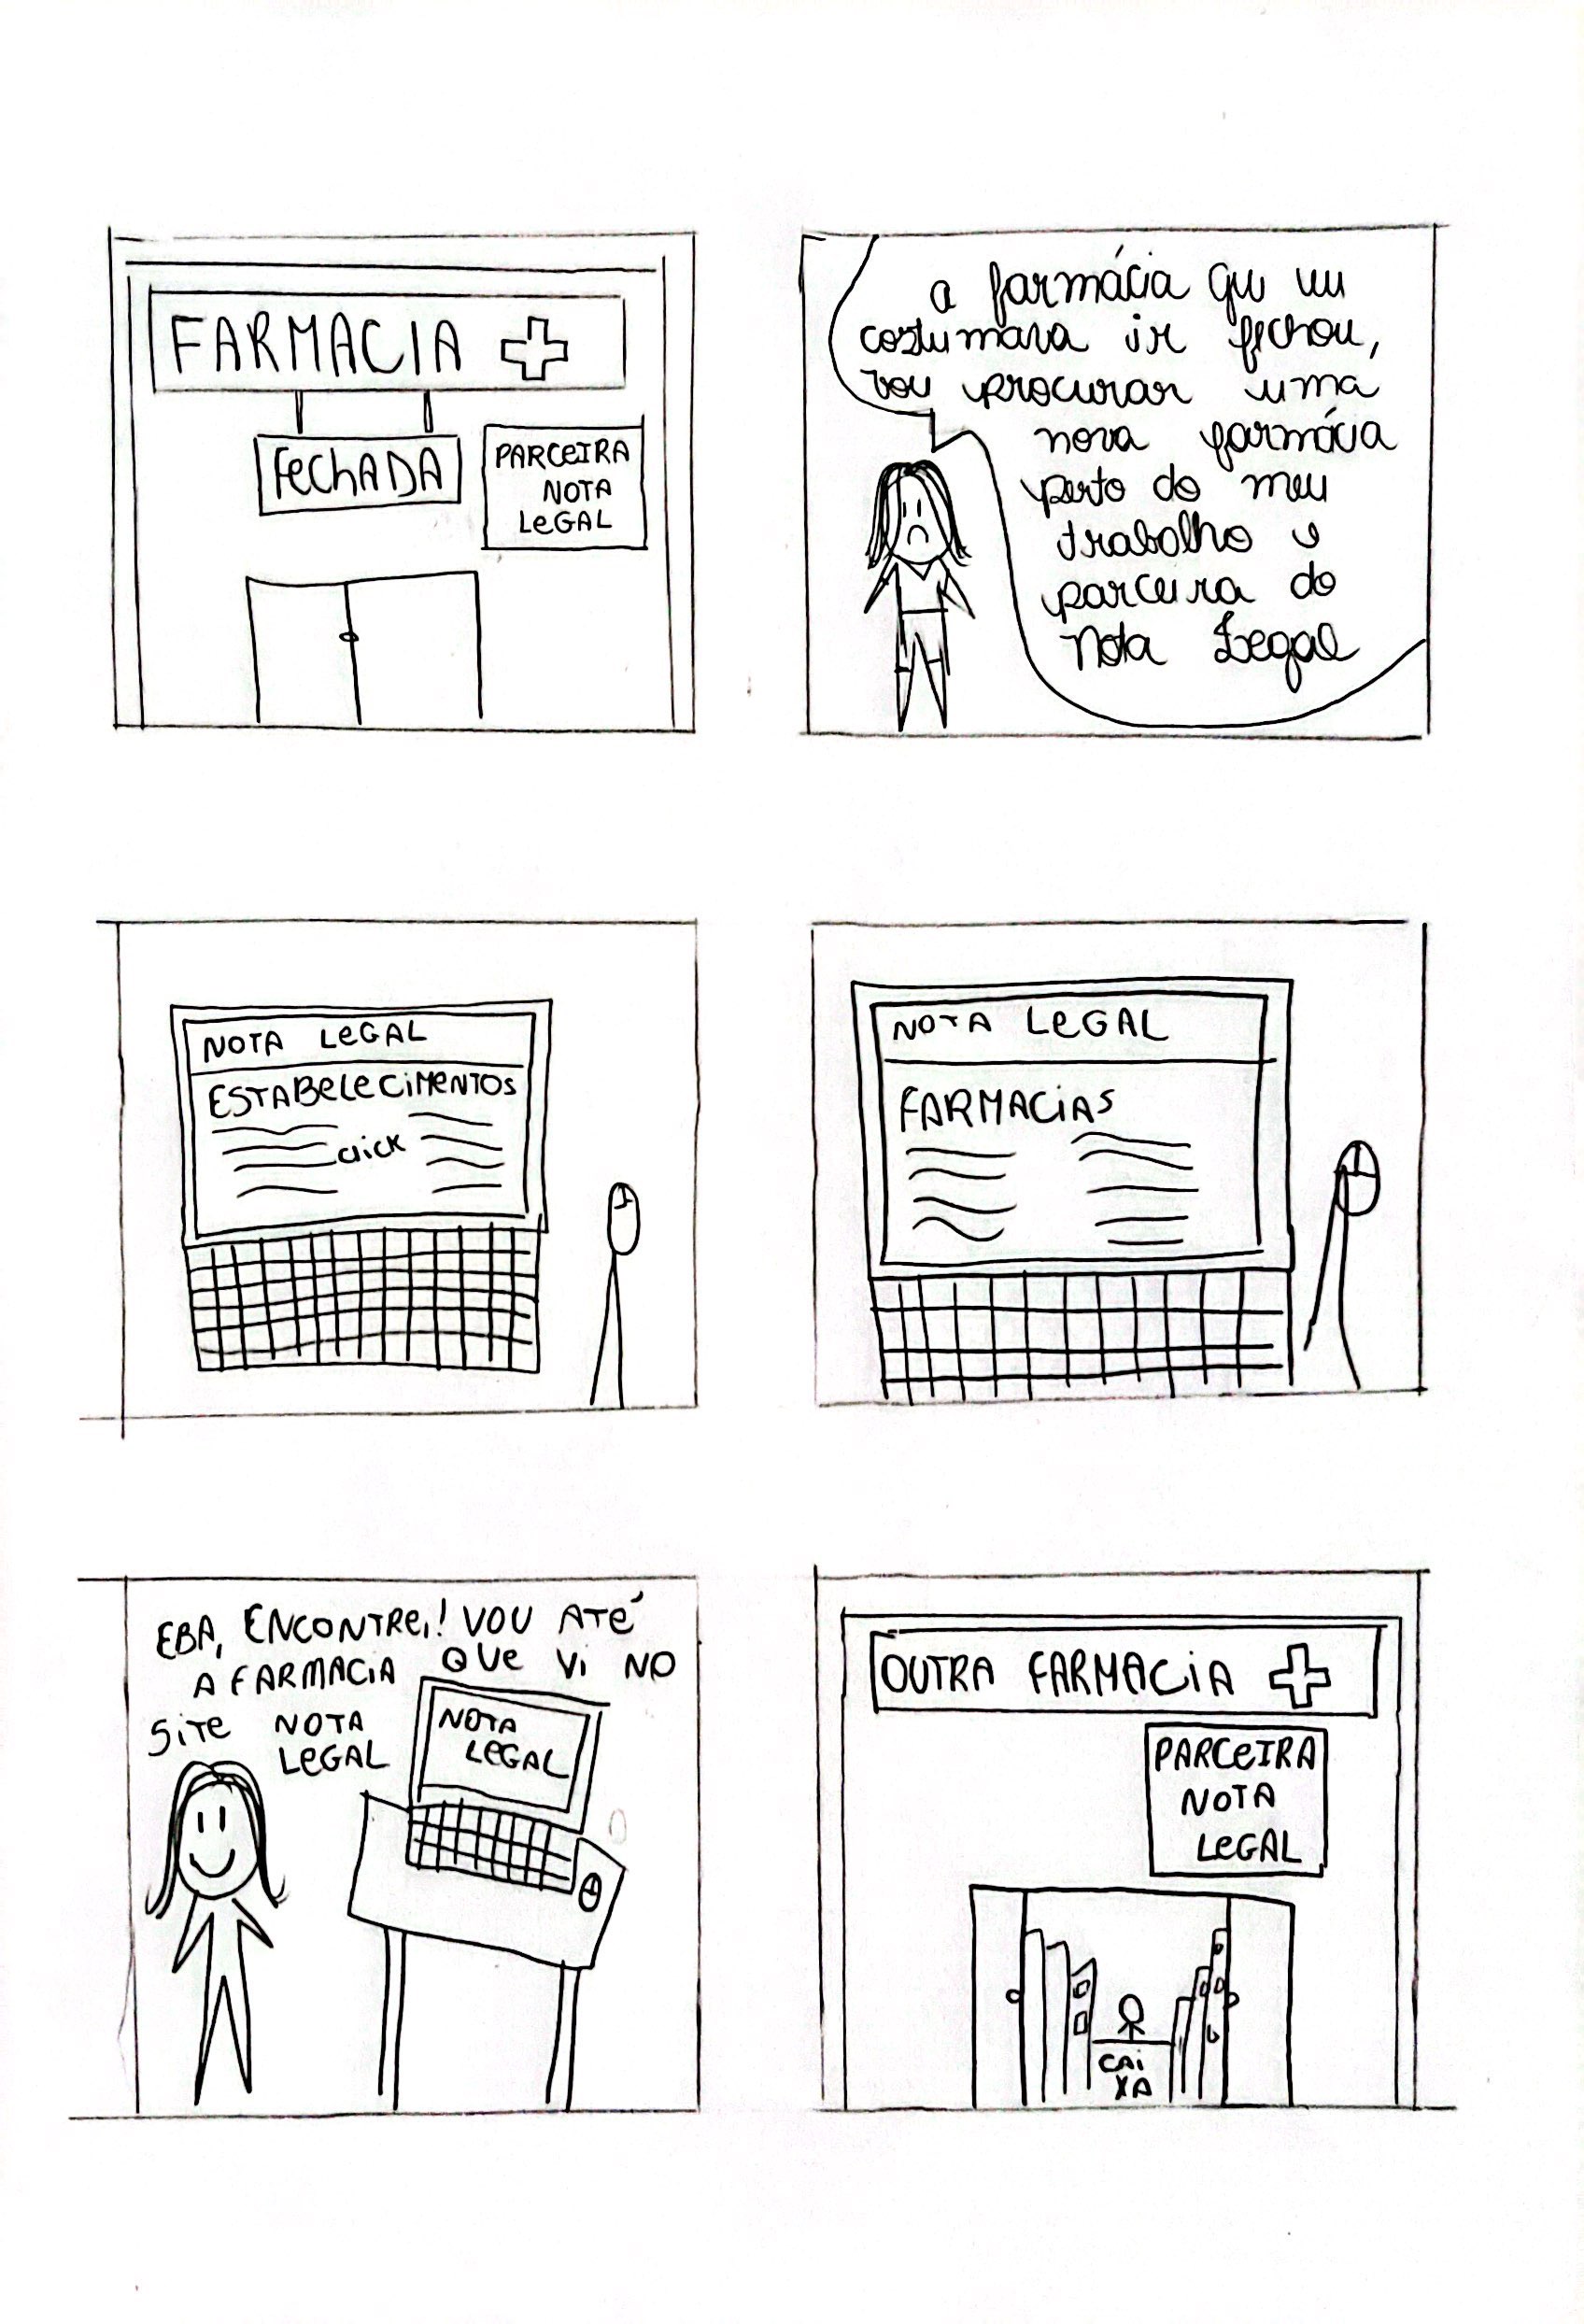 FARMACIA
FechADA
PARCEIRA
NOTA
LeGAL
a farmácia que eu
costumava ir fechou,
vou procurar uma
nova farmácia
perto do meu
trabalho e
parceira do
Nota Legal
NOTA LeGAL
ESTABeLeCiMENTOS
click
NOTA LeGAL
FARMACiAS
EBA, ENCONTRei! VOU ATé
A FARMACiA QUe Vi NO
SiTe NOTA
LeGAL
NOTA
LeGAL
OUTRA FARMACiA
PARCeIRA
NOTA
LeGAL
CAi
XA